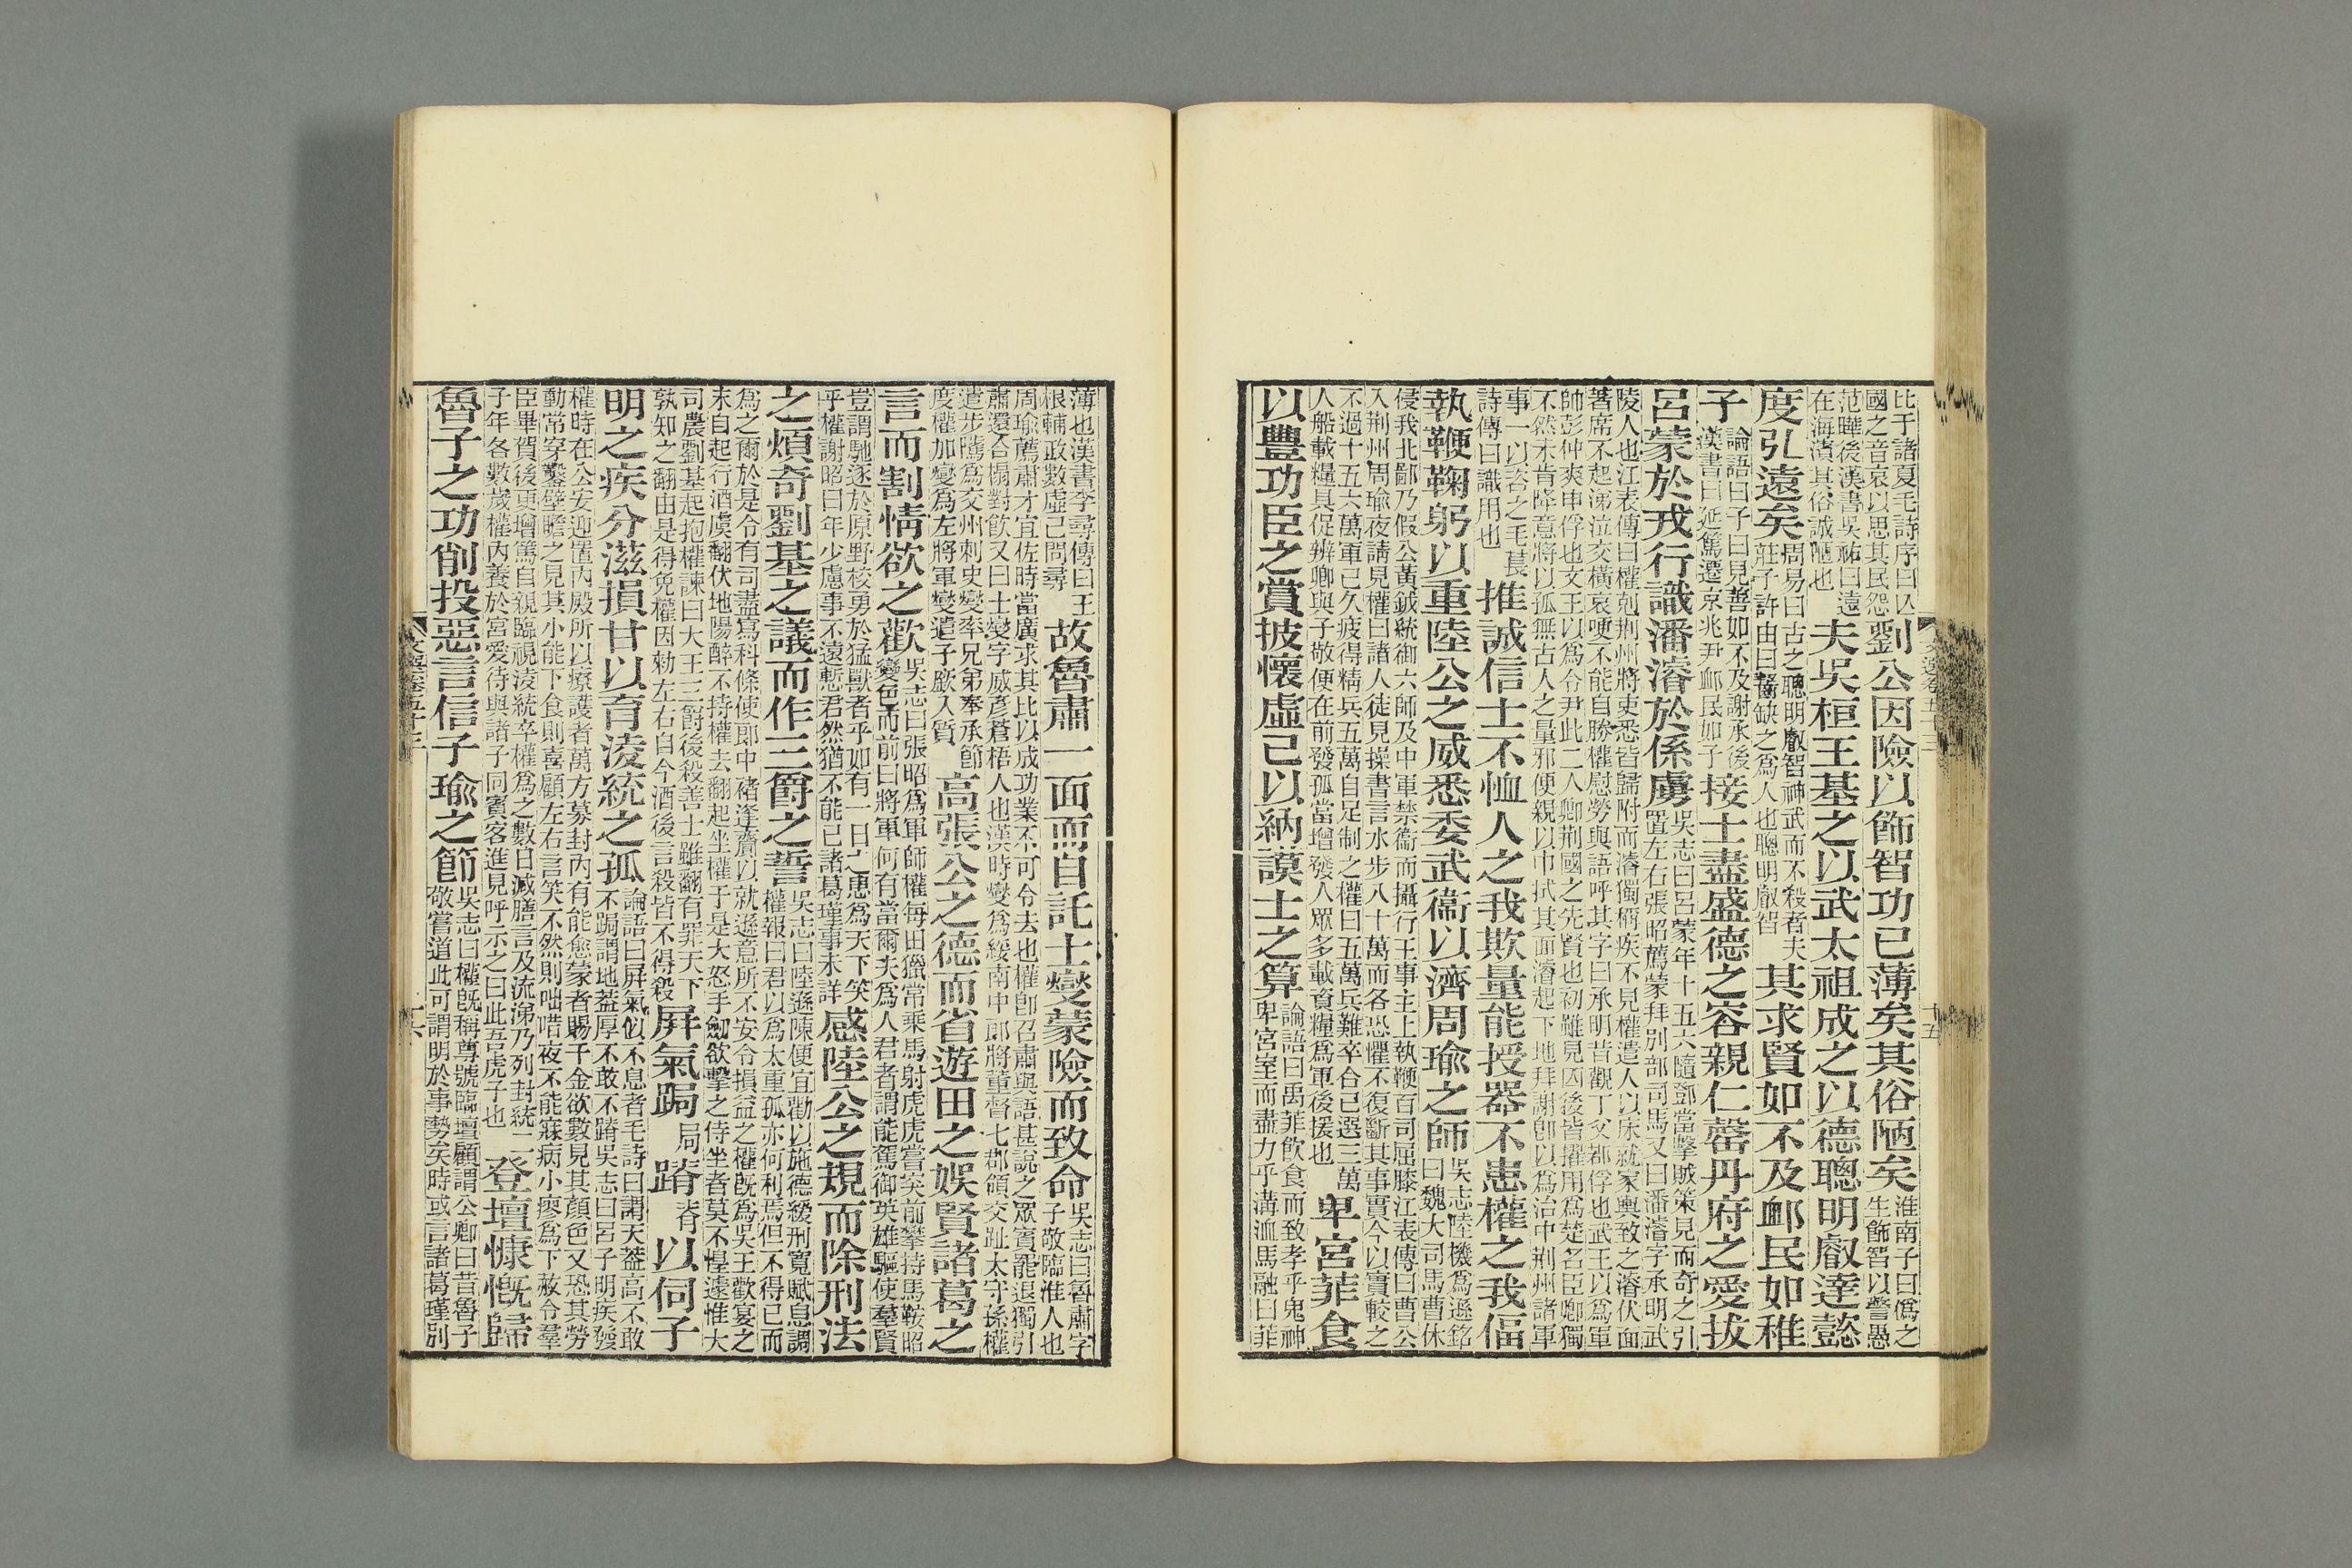 比于諸夏毛詩序曰亾
國之音哀以思其民怨
劉公因險以飾智功已薄矣其俗陋矣
淮南子曰僞之
生飾智以警愚
范曄後漢書吳祐曰遠
在海濱其俗誠陋也
夫吳桓王基之以武太祖成之以德聰明叡達懿
度弘遠矣
周易曰古之聰明叡智神武而不殺者夫
莊子許由曰齧缺之爲人也聰明叡智
其求賢如不及卹民如稚
子
論語曰子曰見善如不及謝承後
漢書曰延篤遷京兆尹卹民如子
接士盡盛德之容親仁罄丹府之愛拔
呂蒙於戎行識潘濬於係虜
吳志曰呂蒙年十五六隨鄧當擊賊策見而奇之引
置左右張昭薦蒙拜別部司馬又曰潘濬字承明武
陵人也江表傳曰權剋荆州將吏悉皆歸附而濬獨稱疾不見權遣人以床就家輿致之濬伏面
著席不起涕泣交橫哀哽不能自勝權慰勞與語呼其字曰承明昔觀丁父鄀俘也武王以爲軍
帥彭仲爽申俘也文王以爲令尹此二人卿荆國之先賢也初雖見囚後皆擢用爲楚名臣卿獨
不然未肯降意將以孤無古人之量邪便親以巾拭其面濬起下地拜謝卽以爲治中荆州諸軍
事一以咨之毛萇
詩傳曰識用也
推誠信士不恤人之我欺量能授器不患權之我偪
執鞭鞠躬以重陸公之威悉委武衞以濟周瑜之師
吳志陸機爲遜銘
曰魏大司馬曹休
侵我北鄙乃假公黃鉞統御六師及中軍禁衞而攝行王事主上執鞭百司屈膝江表傳曰曹公
入荆州周瑜夜請見權曰諸人徒見操書言水步八十萬而各恐懼不復斷其事實今以實較之
不過十五六萬軍已久疲得精兵五萬自足制之權曰五萬兵難卒合已選三萬
人船載糧具促辨卿與子敬便在前發孤當增發人眾多載資糧爲軍後援也
卑宮菲食
以豐功臣之賞披懷虛己以納謨士之算
論語曰禹菲飲食而致孝乎鬼神
卑宮室而盡力乎溝洫馬融曰菲
薄也漢書李尋傳曰王
根輔政數虛己問尋
故魯肅一面而自託士燮蒙險而致命
吳志曰魯肅字
子敬臨淮人也
周瑜薦肅才宜佐時當廣求其比以成功業不可令去也權卽召肅與語甚說之眾賓罷退獨引
肅還合榻對飲又曰士燮字威彥蒼梧人也漢時燮爲綏南中郎將董督七郡領交趾太守孫權
遣步隲爲交州刺史燮率兄弟奉承節
度權加燮爲左將軍燮遣子廞入質
高張公之德而省遊田之娛賢諸葛之
言而割情欲之歡
吳志曰張昭爲軍師權每田獵常乘馬射虎虎嘗突前攀持馬鞍昭
變色而前曰將軍何有當爾夫爲人君者謂能駕御英雄驅使羣賢
豈謂馳逐於原野校勇於猛獸者乎如有一日之患爲天下笑
乎權謝昭曰年少慮事不遠慙君然猶不能已諸葛瑾事未詳
感陸公之規而除刑法
之煩奇劉基之議而作三爵之誓
吳志曰陸遜陳便宜勸以施德緩刑寬賦息調
權報曰君以爲太重孤亦何利焉但不得已而
爲之爾於是令有司盡寫科條使郎中褚逢齎以就遜意所不安令損益之權旣爲吳王歡宴之
末自起行酒虞翻伏地陽醉不持權去翻起坐權于是大怒手劒欲擊之侍坐者莫不惶遽惟大
司農劉基起抱權諫曰大王三爵後殺善士雖翻有罪天下
孰知之翻由是得免權因勑左右自今酒後言殺皆不得殺
屏氣跼
局
蹐
脊
以伺子
明之疾分滋損甘以育淩統之孤
論語曰屏氣似不息者毛詩曰謂天蓋高不敢
不跼謂地蓋厚不敢不蹐吳志曰呂子明疾發
權時在公安迎置內殿所以療護者萬方募封內有能愈蒙者賜千金欲數見其顏色又恐其勞
動常穿鑿壁瞻之見其小能下食則喜顧左右言笑不然則咄唶夜不能寐病小瘳爲下赦令羣
臣畢賀後更增篤自親臨視淩統卒權爲之數日減膳言及流涕乃列封統二
子年各數歲權內養於宮愛待與諸子同賓客進見呼示之曰此吾虎子也
登壇慷慨歸
魯子之功削投惡言信子瑜之節
吳志曰權旣稱尊號臨壇顧謂公卿曰昔魯子
敬嘗道此可謂明於事勢矣時或言諸葛瑾別